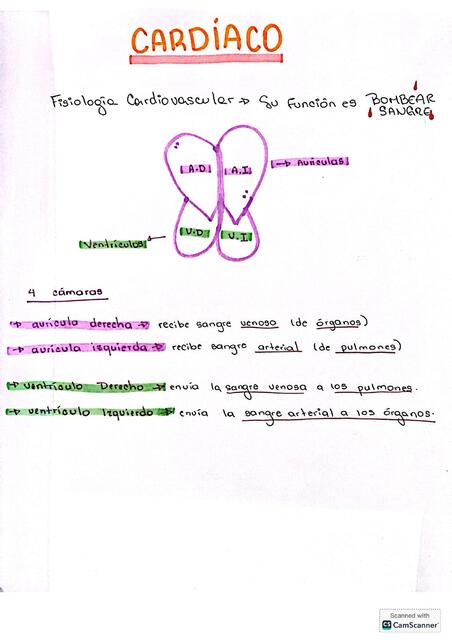 CARDÍACO
Fisiología Cardiovascular → Su función es BOMBEAR
SANGRE
A.D A.I → Aurículas
V.D V.I
Ventrículos
4 cámaras
→ aurículo derecha → recibe sangre venoso (de órganos)
→ aurícula izquierda → recibe sangre arterial (de pulmones)
→ ventrículo Derecho → envía la sangre venosa a los pulmones.
→ ventrículo Izquierdo → envía la sangre arterial a los órganos.
Scanned with
CS CamScanner